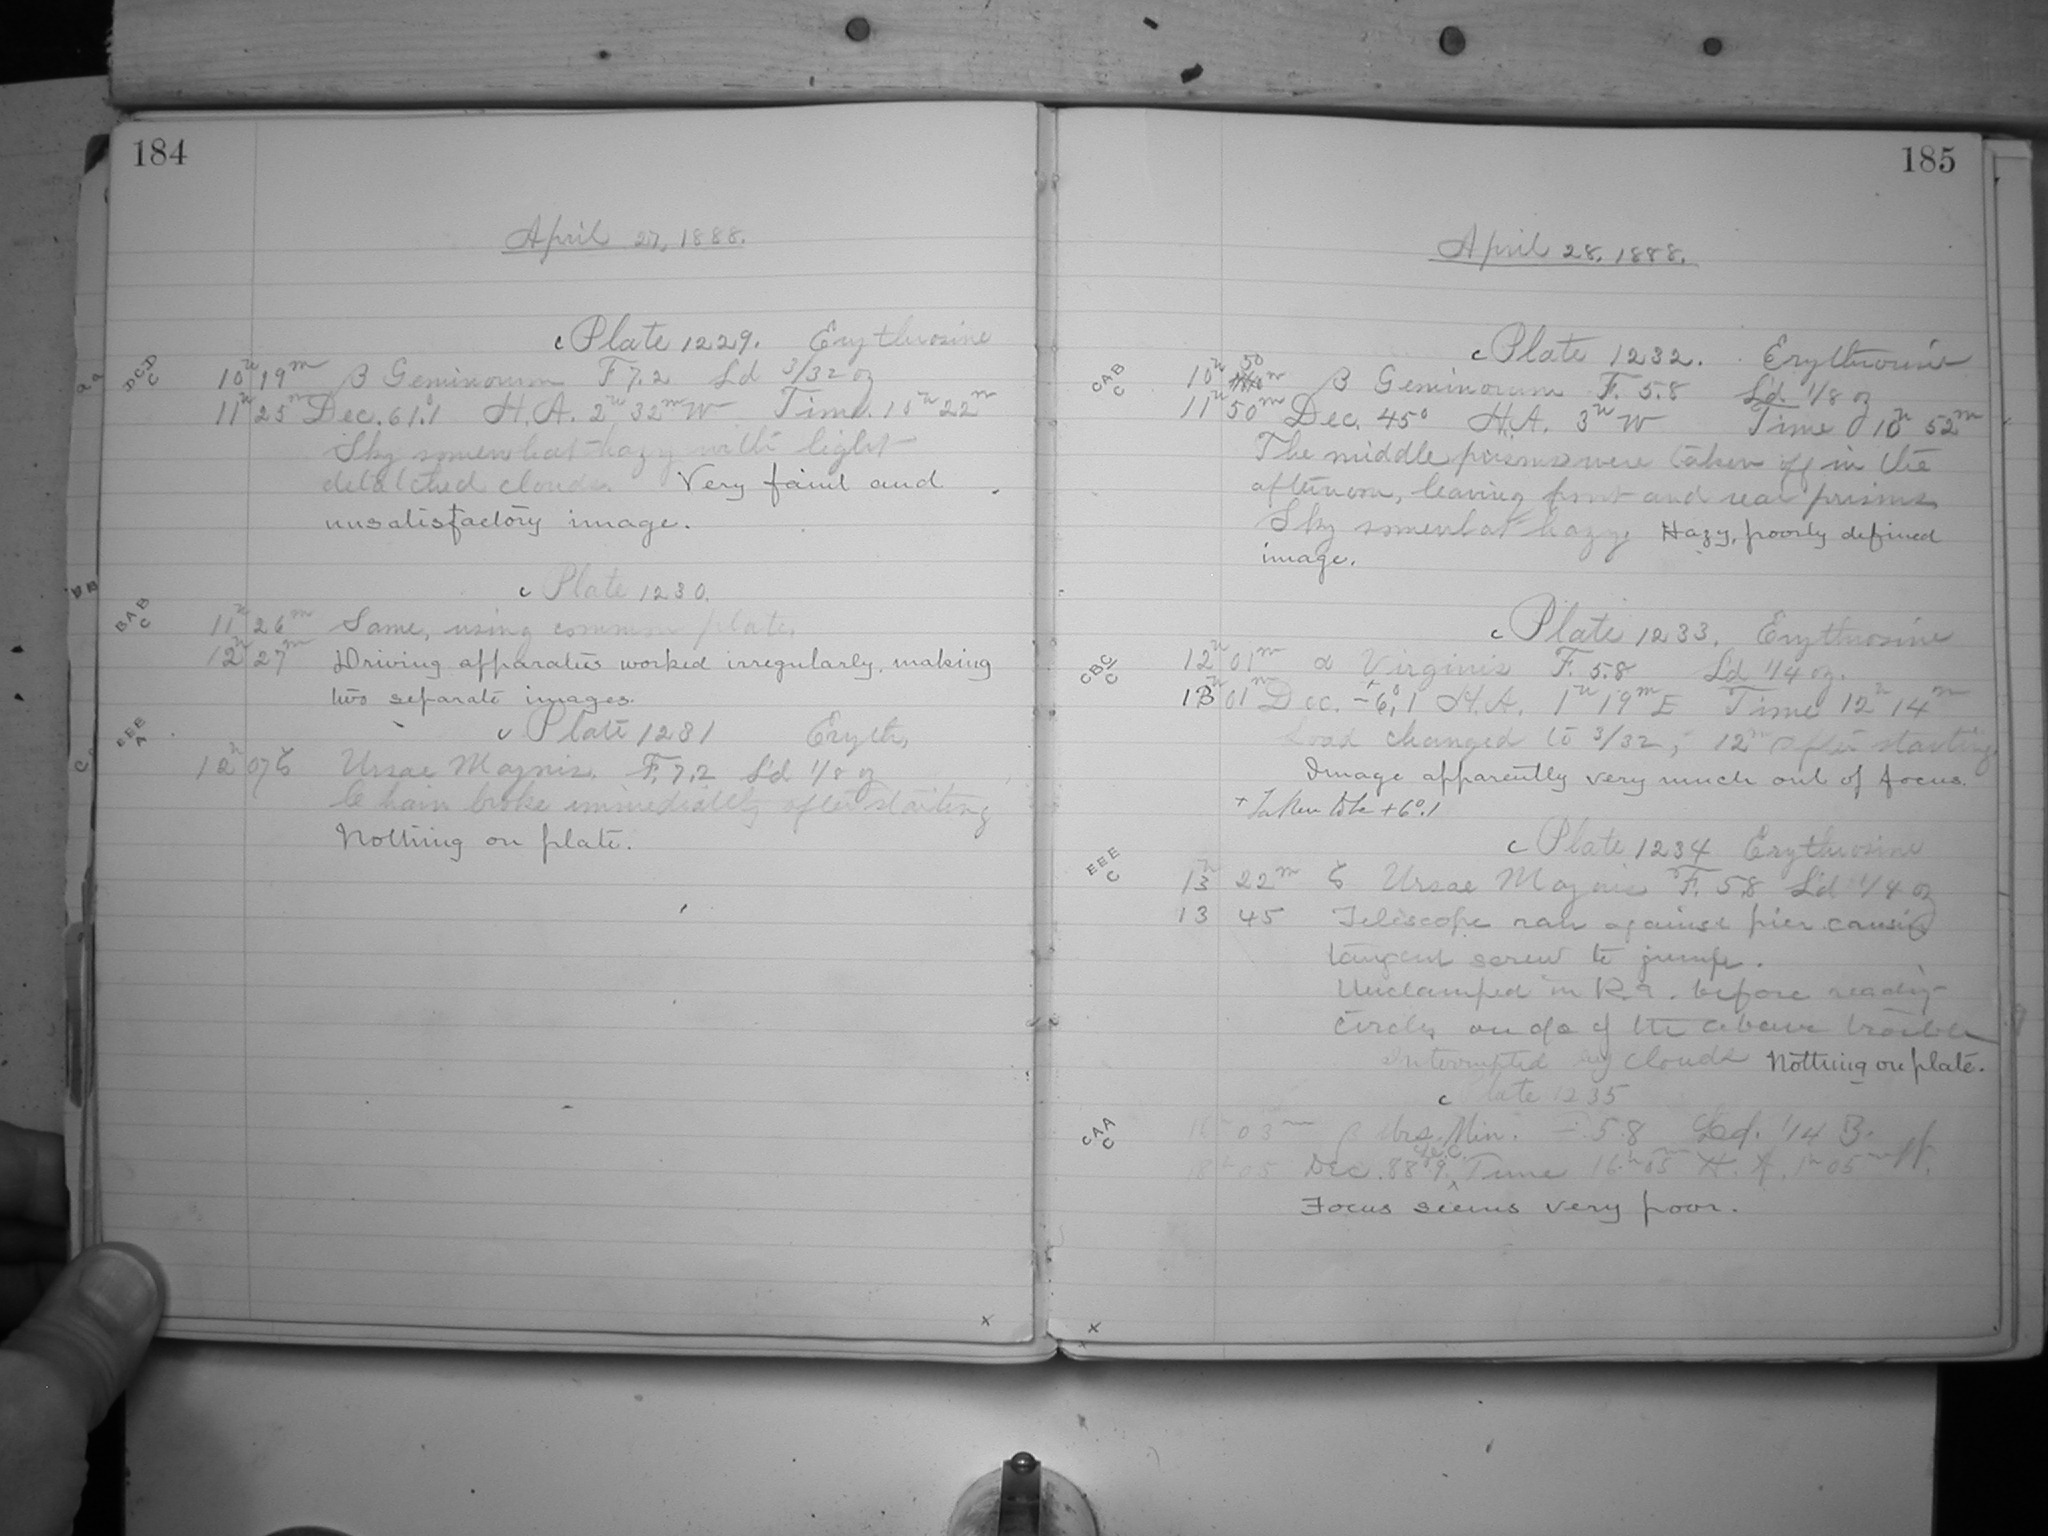 184
April 27, 1888.
c Plate 1229. Erythrosine
DCD
C
10h 19m β Geminorum F 7.2 Ld 3/32 oz
11h 25m Dec. 61°.1 H.A. 2h 32m W Time. 10h 22m
Sky somewhat hazy with light
detatched clouds. Very faint and
unsatisfactory image.
c Plate 1230.
BAB
C
11h 26m Same, using common plate.
12h 27m Driving apparatus worked irregularly, making
two separate images.
c Plate 1231 Eryth.
EEE
A
12h 07 ζ Ursae Majoris. F. 7.2 L'd 1/8 oz
Chain broke immediately after starting
Nothing on plate.
185
April 28. 1888.
c Plate 1232. Erythrosine
CAB
C
10h 50m β Geminorum F. 5.8 L'd. 1/8 oz
11h 50m Dec. 45° H.A. 3h W Time 10h 52m
The middle prisms were taken off in the
afternoon, leaving front and rear prisms
Sky somewhat hazy. Hazy, poorly defined
image.
c Plate 1233. Erythrosine
CBC
C
12h 01m α Virginis F. 5.8 Ld 1/4 oz.
13h 01m Dec. -6°.1 H.A. 1h 19m E Time 12h 14m
Load changed to 3/32, 12m after starting.
Image apparently very much out of focus.
+ Taken to be +6°.1
c Plate 1234 Erythrosine
EEE
C
13h 22m ζ Ursae Majoris F. 5.8 L'd 1/4 oz
13 45 Telescope ran against pier causing
tangent screw to jump.
Unclamped in R.A. before reading
circles on a/c of the above trouble
Interrupted by clouds Nothing on plate.
c Plate 1235
CAA
C
03m β Urs. Min. F. 5.8 Ld. 1/4 B.
05 Dec. 88°.9 Time 16h 05m H.A. 1h 05m W.
Focus seems very poor.